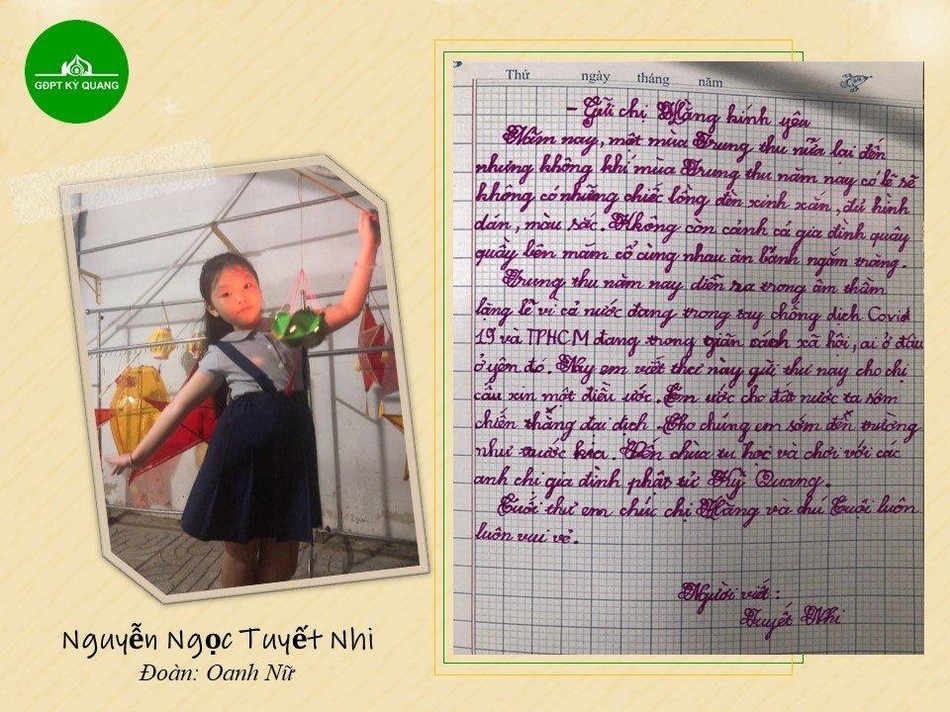 GĐPT KỲ QUANG
Thứ ngày tháng năm
- Gửi chị Hằng kính yêu
Năm nay, một mùa Trung thu nữa lại đến
nhưng không khí mùa Trung thu năm nay có lẽ sẽ
không có những chiếc lồng đèn xinh xắn, đủ hình
dán, màu sắc. Không còn cảnh cả gia đình quây
quầy bên mâm cổ cùng nhau ăn bánh ngắm trăng.
Trung thu năm nay diễn ra trong âm thầm
lặng lẽ vì cả nước đang trong tay chống dịch Covid
19 và TPHCM đang trong giãn cách xã hội, ai ở đâu
ở yên đó. Nay em viết thư này gửi thư nay cho chị
cầu xin một điều ước. Em ước cho đất nước ta sớm
chiến thắng đại dịch. Cho chúng em sớm đến trường
như trước kia. Đến chùa tu học và chơi với các
anh chị gia đình phật tử Kỳ Quang.
Cuối thư em chúc chị Hằng và chú Cuội luôn
luôn vui vẻ.
Người viết:
Tuyết Nhi
Nguyễn Ngọc Tuyết Nhi
Đoàn: Oanh Nữ